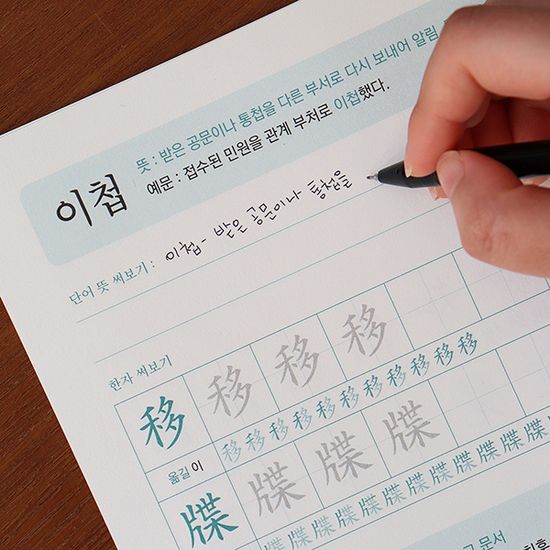 뜻 : 받은 공문이나 통첩을 다른 부서로 다시 보내어 알림.
이첩
예문 : 접수된 민원을 관계 부처로 이첩했다.
단어 뜻 써보기 :
이첩 - 받은 공문이나 통첩을
한자 써보기
移 移 移 移
移 移 移 移 移 移 移 移 移 移
옮길 이
牒 牒 牒 牒
牒 牒 牒 牒 牒 牒 牒 牒 牒 牒
공 문서